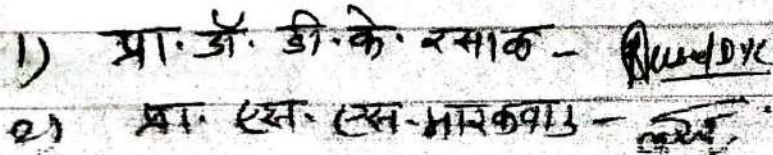 1) प्रा. डॉ. डी. के. रसाळ -
२) प्रा. एस. एस. मारकवाड -